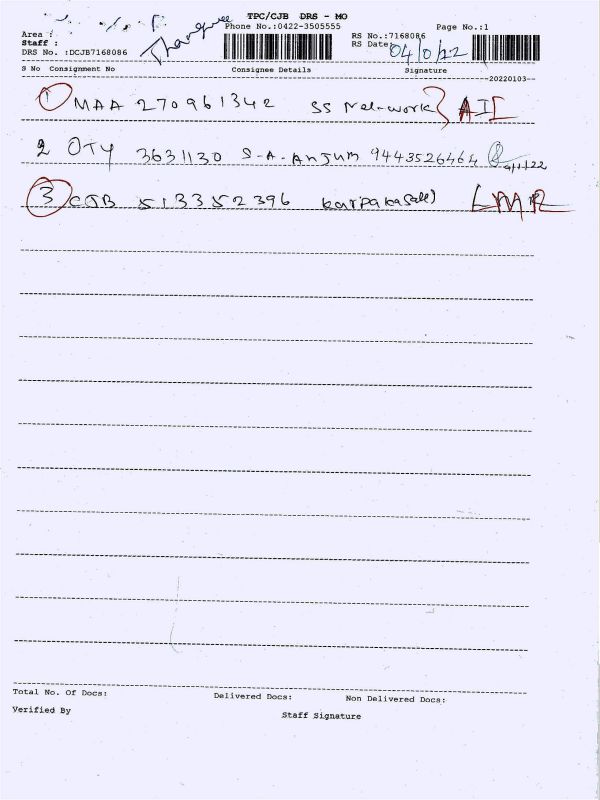 TPC/CJB DRS - MO
Phone No.:0422-3505555
Page No.:1
Area :
Staff :
DRS No. :DCJB7168086
RS No.:7168086
RS Date: 04/0/22
S No Consignment No Consignee Details Signature
--20220103--
1 MAA 270961342 SS Net-work AII
2 OTY 3631130 S-A-Anjum 9443526464 4/1/22
3 CJB 513352396
Total No. Of Docs: Delivered Docs: Non Delivered Docs:
Verified By Staff Signature